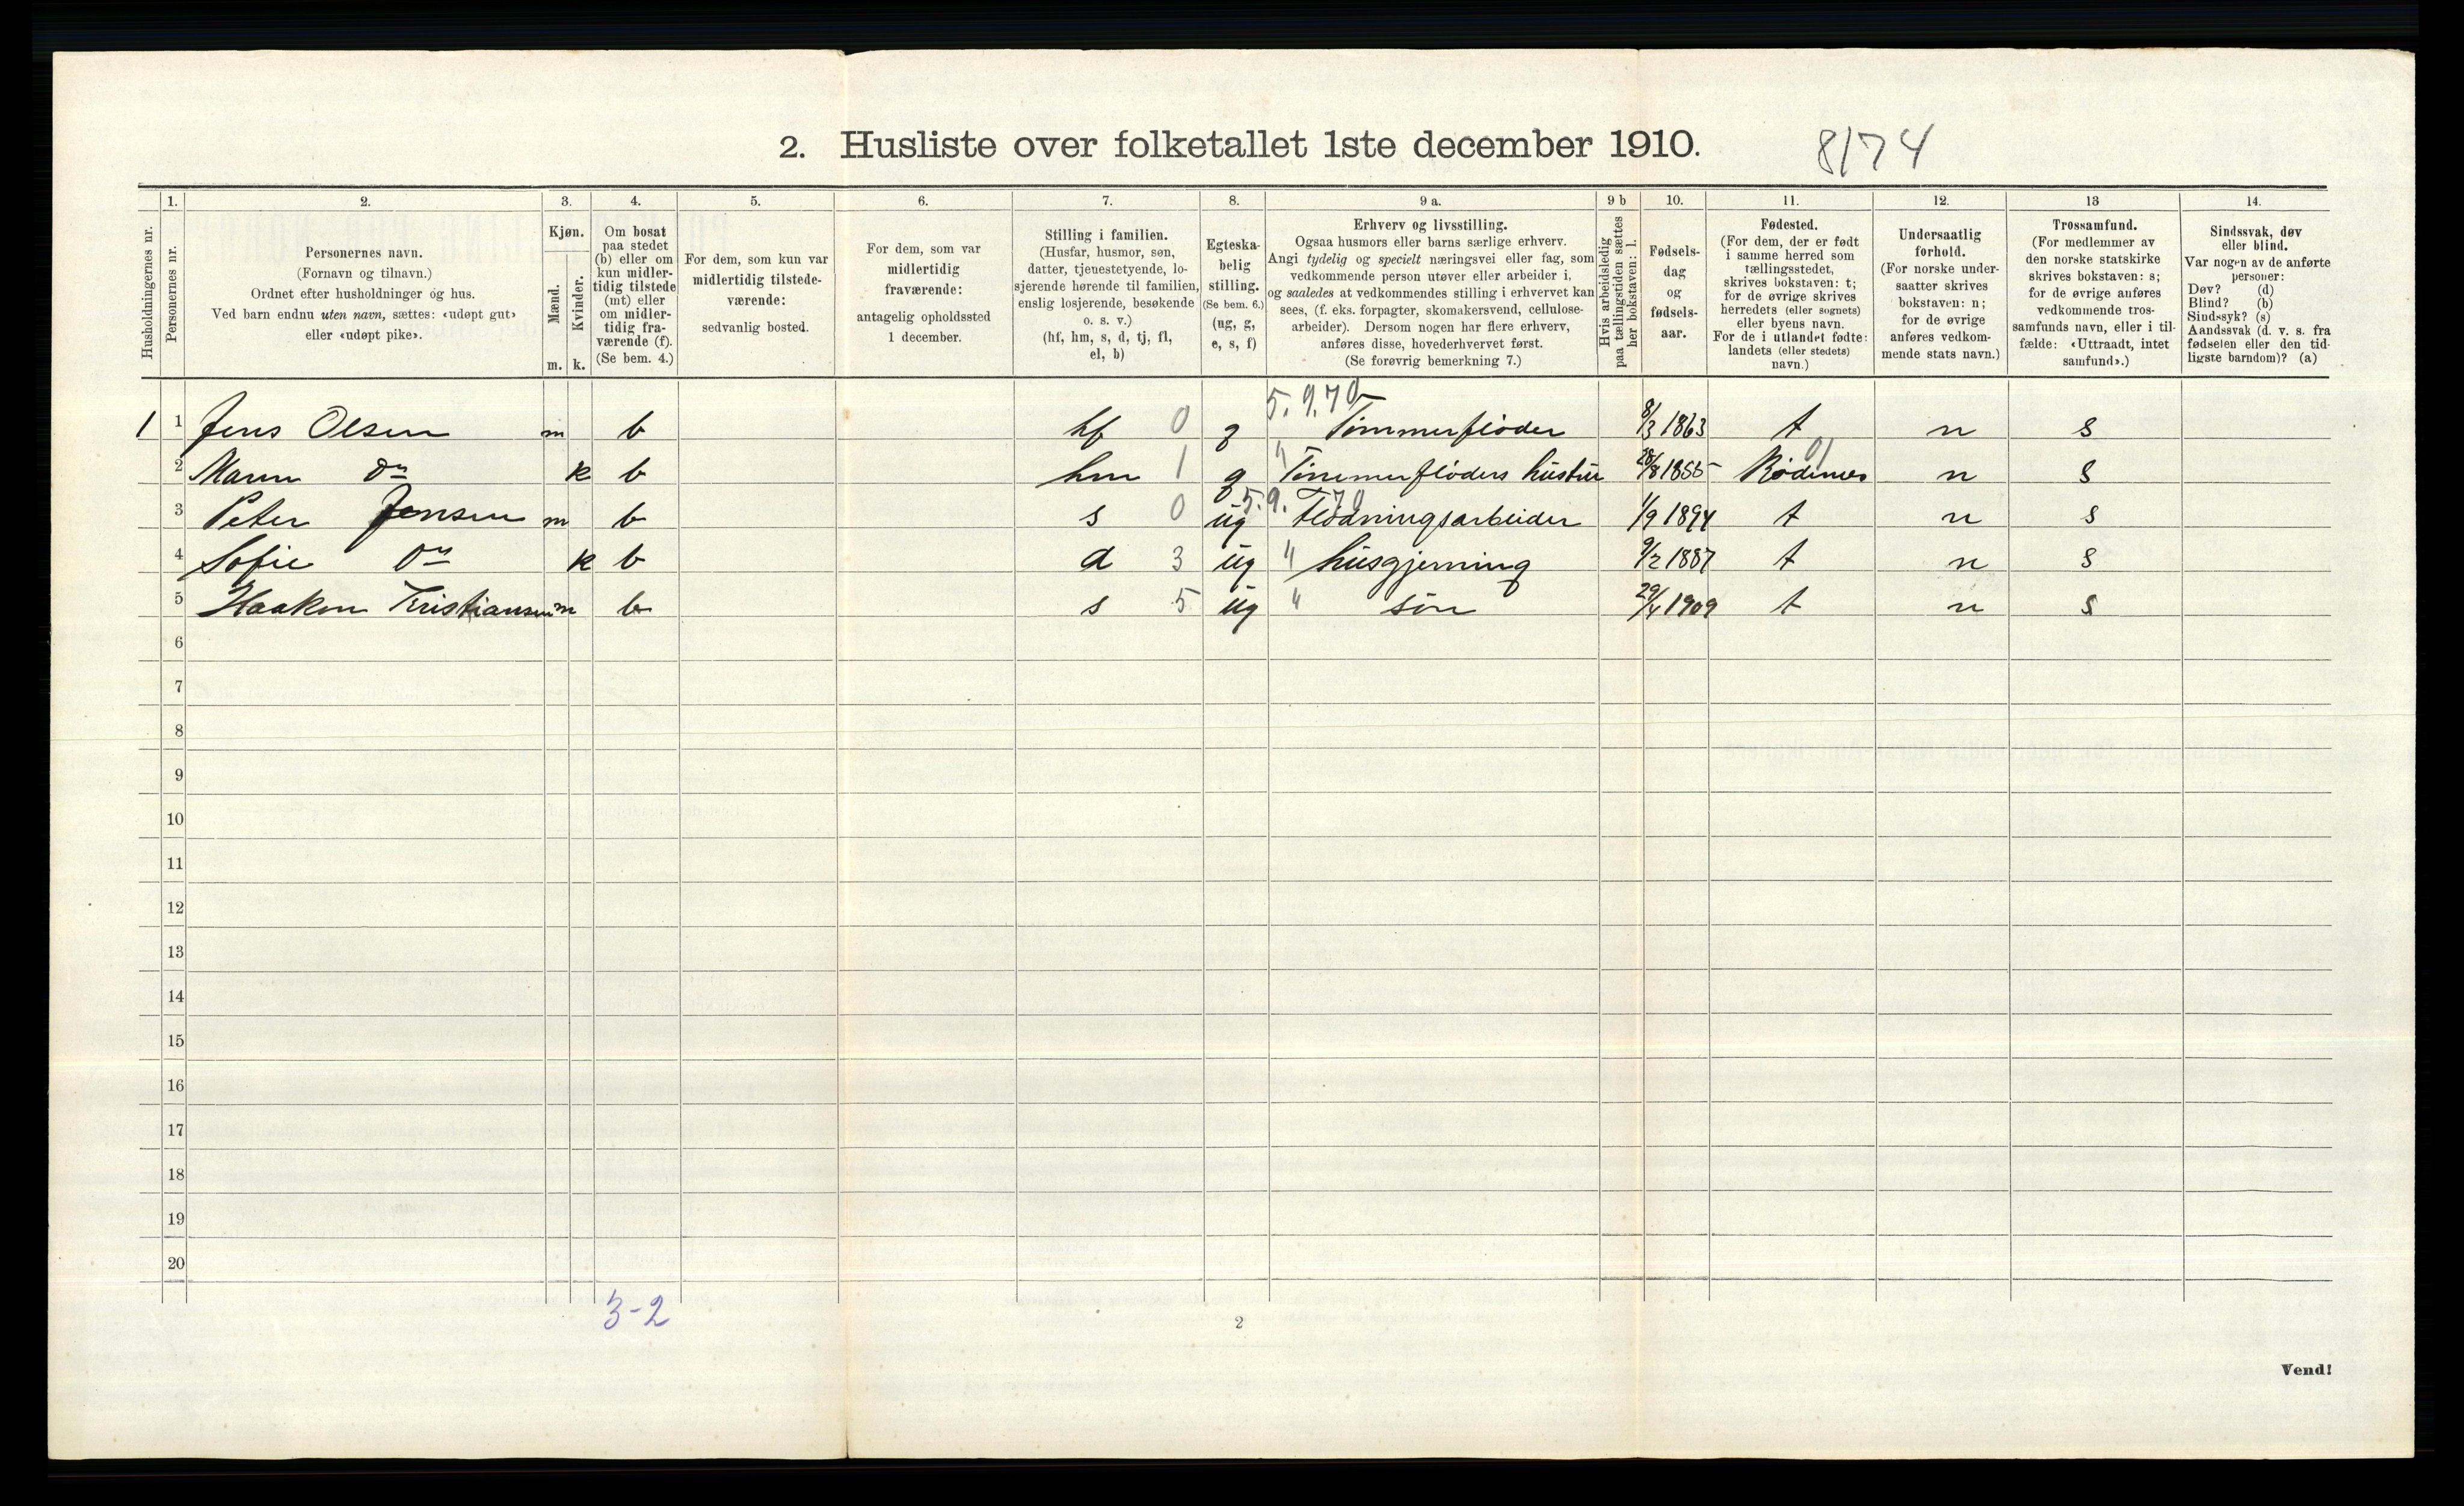 2. Husliste over folketallet 1ste december 1910.
8174
Husholdningernes nr.
1.
Personernes nr.
2.
Personernes navn.
(Fornavn og tilnavn.)
Ordnet efter husholdninger og hus.
Ved barn endnu uten navn, sættes: «udøpt gut»
eller «udøpt pike».
3.
Kjøn.
Mænd.
Kvinder.
m. k.
4.
Om bosat
paa stedet
(b) eller om
kun midler-
tidig tilstede
(mt) eller
om midler-
tidig fra-
værende (f).
(Se bem. 4.)
5.
For dem, som kun var
midlertidig tilstede-
værende:
sedvanlig bosted.
6.
For dem, som var
midlertidig
fraværende:
antagelig opholdssted
1 december.
7.
Stilling i familien.
(Husfar, husmor, søn,
datter, tjenestetyende, lo-
sjerende hørende til familien,
enslig losjerende, besøkende
o. s. v.)
(hf, hm, s, d, tj, fl,
el, b)
8.
Egteska-
belig
stilling.
(Se bem. 6.)
(ug, g,
e, s, f)
9 a.
Erhverv og livsstilling.
Ogsaa husmors eller barns særlige erhverv.
Angi tydelig og specielt næringsvei eller fag, som
vedkommende person utøver eller arbeider i,
og saaledes at vedkommendes stilling i erhvervet kan
sees, (f. eks. forpagter, skomakersvend, cellulose-
arbeider). Dersom nogen har flere erhverv,
anføres disse, hovederhvervet først.
(Se forøvrig bemerkning 7.)
9 b
Hvis arbeidsledig
paa tællingstiden sættes
her bokstaven: l.
10.
Fødsels-
dag
og
fødsels-
aar.
11.
Fødested.
(For dem, der er født
i samme herred som
tællingsstedet,
skrives bokstaven: t;
for de øvrige skrives
herredets (eller sognets)
eller byens navn.
For de i utlandet fødte:
landets (eller stedets)
navn.)
12.
Undersaatlig
forhold.
(For norske under-
saatter skrives
bokstaven: n;
for de øvrige
anføres vedkom-
mende stats navn.)
13
Trossamfund.
(For medlemmer av
den norske statskirke
skrives bokstaven: s;
for de øvrige anføres
vedkommende tros-
samfunds navn, eller i til-
fælde: «Uttraadt, intet
samfund».)
14.
Sindssvak, døv
eller blind.
Var nogen av de anførte
personer:
Døv? (d)
Blind? (b)
Sindssyk? (s)
Aandssvak (d. v. s. fra
fødselen eller den tid-
ligste barndom)? (a)
5.9.70
1 1 Jens Olsen m b hf 0 g Tømmerfløder 8/3 1863 t n s
01
2 Maren Dn k b hm 1 g " Tømmerfløders hustru 28/8 1855 Rødenes n s
5.9.70
3 Peter Jensen m b s 0 ug Flødningsarbeider 1/9 1894 t n s
4 Sofie Dn k b d 3 ug " husgjerning 9/2 1887 t n s
5 Haakon Kristiansen m b s 5 ug " søn 29/4 1909 t n s
6
7
8
9
10
11
12
13
14
15
16
17
18
19
20
3-2
2
Vend!